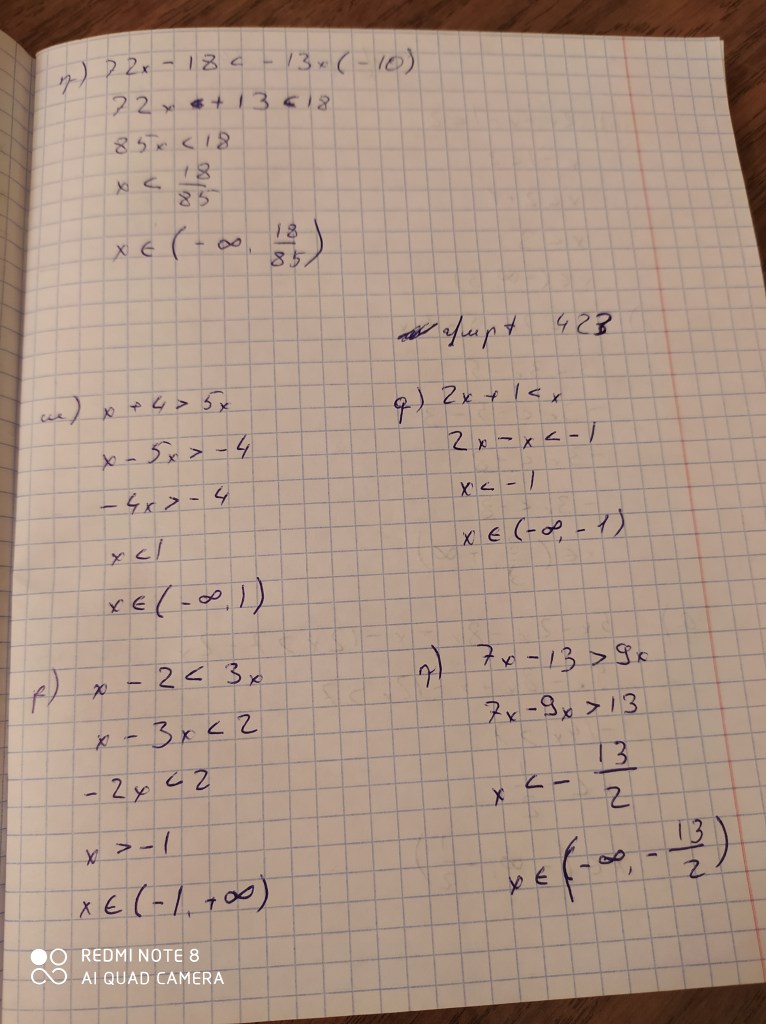 դ) 72x - 18 < - 13x (-10)
72x + 13 < 18
85x < 18
x < 18/85
x ∈ (-∞, 18/85)
վարժ 423
ա) x + 4 > 5x
x - 5x > -4
-4x > -4
x < 1
x ∈ (-∞, 1)
բ) x - 2 < 3x
x - 3x < 2
-2x < 2
x > -1
x ∈ (-1, +∞)
գ) 2x + 1 < x
2x - x < -1
x < -1
x ∈ (-∞, -1)
դ) 7x - 13 > 9x
7x - 9x > 13
x < - 13/2
x ∈ (-∞, - 13/2)
REDMI NOTE 8
AI QUAD CAMERA